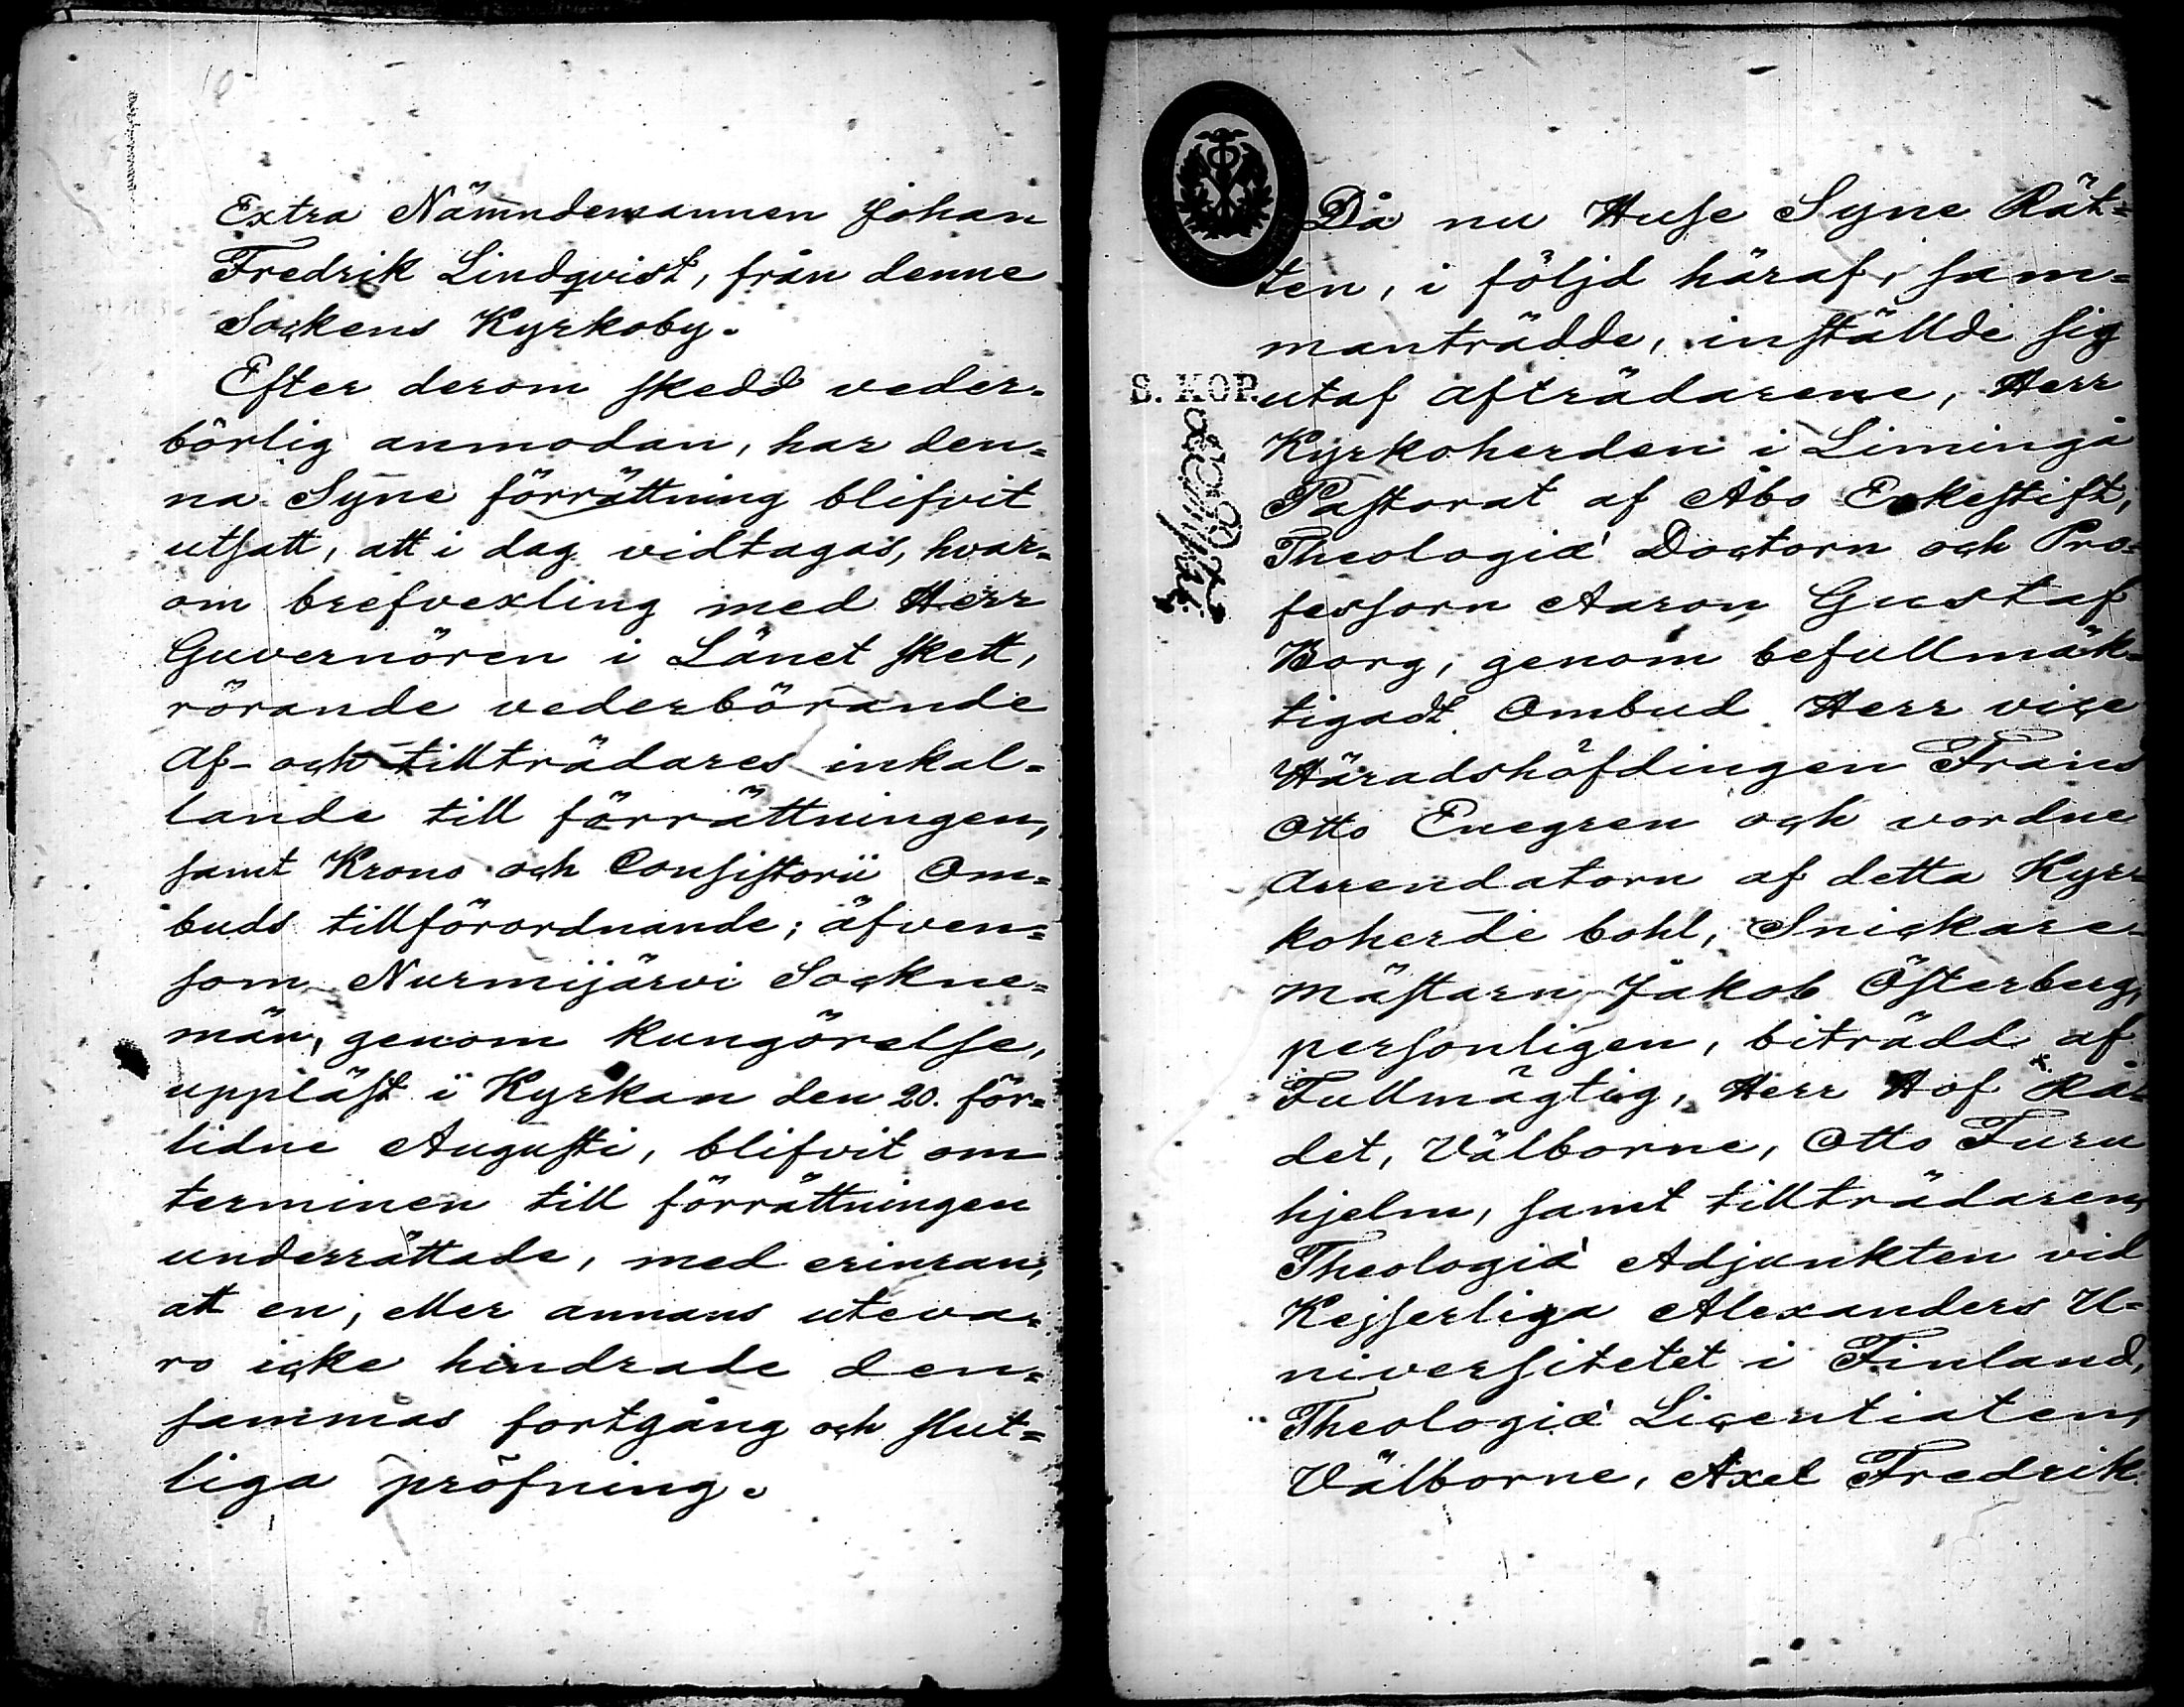 Extra Nämndemannen Johan
Fredrik Lindqvist, från denne
Sockens Kyrkoby.
Efter derom skedd veder-
börlig anmodan, har den=
na Syne förrättning blifvit
utsatt, att i dag vidtagas, hvar=
om brefvexling med Herr
Guvernören i Länet skett,
rörande vederbörande
af- och tillträdares inkal=
lande till förrättningen,
samt Krono och Consistorii Om=
buds tillförordnande; äfven=
som Nurmijärvi Sockne=
män, genom kungörelse,
uppläst i Kyrkan den 20. för=
lidne Augusti, blifvit om
terminen till förrättningen
underrättade, med erinran,
att en, eller annans uteva=
ro icke hindrade den=
sammas fortgång och slut=
liga pröfning.
Då nu Huse Syne Rät=
ten, i följd häraf, sam=
manträdde, inställde sig
S. KOP.
utaf afträdarene, Herr
Kyrkoherden i Limingå
Pastorat af Åbo Erkestift,
Theologiæ Doctorn och Pro=
fessorn Aaron Gustaf
Borg, genom befullmäk=
tigadt Ombud Herr vice
Häradshöfdingen Frans
Otto Enegren och vordne
Arrendatorn af detta Kyr=
koherde bohl, Snickare-
mästarn Jakob Österberg,
personligen, biträdd af
Fullmägtig, Herr Hof Rå-
det, Välborne, Otto Furu
hjelm, samt tillträdaren,
Theologiæ Adjunkten vid
Kejserliga Alexanders U=
niversitetet i Finland,
Theologiæ Licentiaten,
Välborne, Axel Fredrik